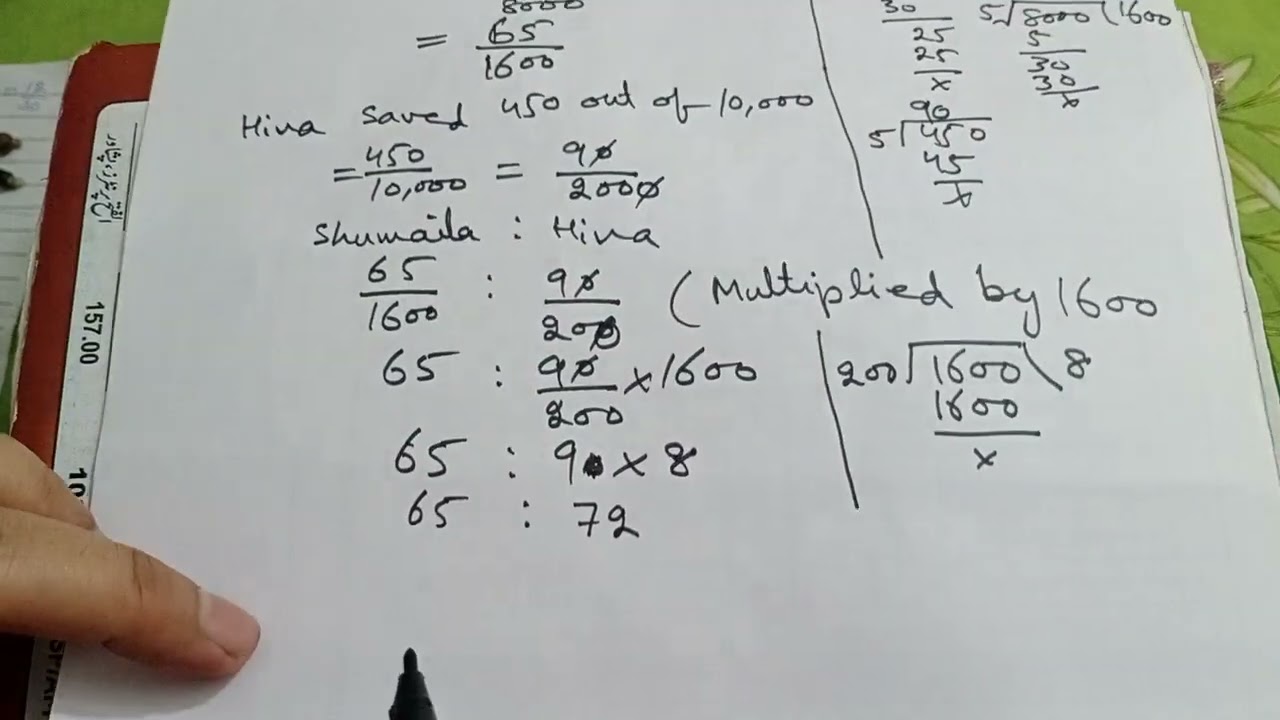 8000
= 65/1600
Hina saved 450 out of 10,000
= 450/10,000 = 90/2000
Shumaila : Hina
65/1600 : 90/200 (Multiplied by 1600
65 : 90/200 × 1600
65 : 9 × 8
65 : 72
30
25
25
×
90
5 450
45
×
5 8000 1600
5
30
30
×
200 1600 8
1600
×
157.00